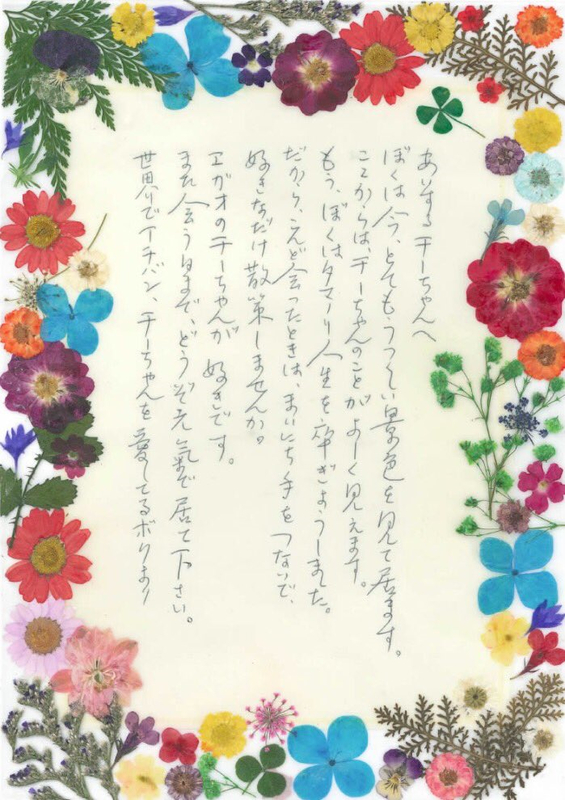 あいするチーちゃんへ
ぼくは今、とてもうつくしい景色を見て居ます。
ここからは、チーちゃんのことがよーく見えます。
もう、ぼくはタマノリ人生を卒ぎょうしました。
だから、こんど会ったときは、まいにち手をつないで、
好きなだけ散策しませんか。
エガオのチーちゃんが 好きです。
また会う日まで、どうぞ元氣で居て下さい。
世界でイチバン、チーちゃんを愛してるボクより